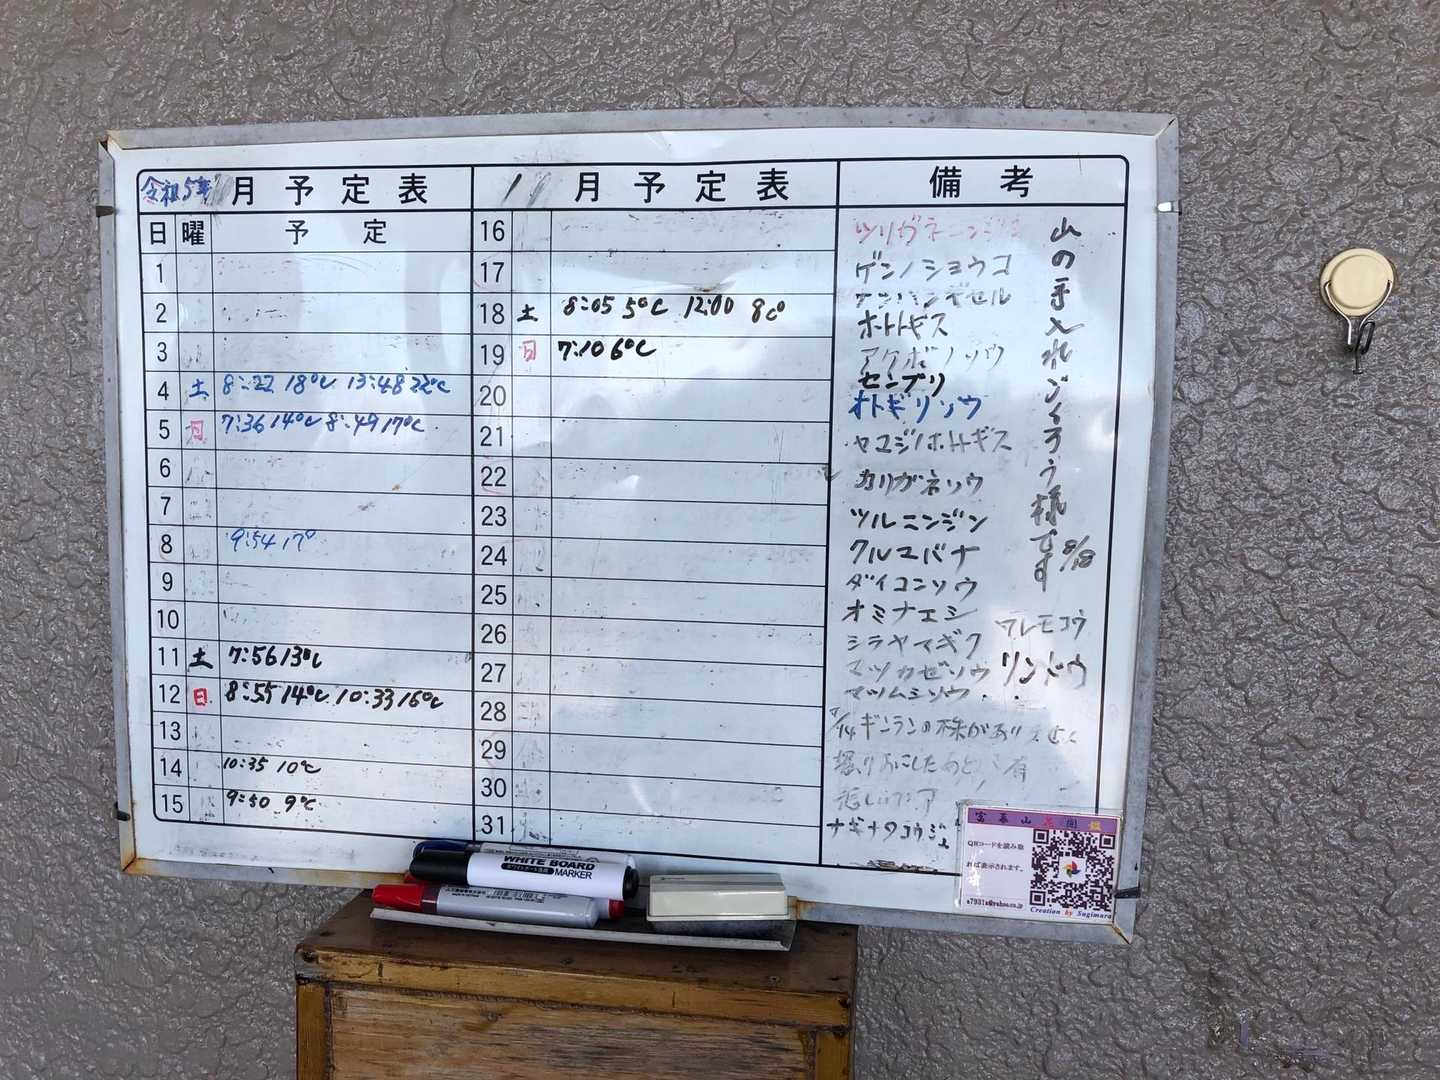 令和5年 11月予定表
日 曜 予定
1
2
3
4 土 8:22 18℃ 13:48 22℃
5 日 7:36 14℃ 8:49 17℃
6
7
8 9:54 17°
9
10
11 土 7:56 13℃
12 日 8:55 14℃ 10:33 16℃
13
14 10:35 10℃
15 9:50 9℃
11月予定表
16
17
18 土 8:05 5℃ 12:00 8℃
19 日 7:10 6℃
20
21
22
23
24
25
26
27
28
29
30
31
備考
ツリガネニンジン
ゲンノショウコ
ナンバンギセル
ホトトギス
アケボノソウ
センブリ
オトギリソウ
ヤマジノホトトギス
カリガネソウ
ツルニンジン
クルマバナ
ダイコンソウ
オミナエシ
ワレモコウ
シラヤマギク
マツカゼソウ
リンドウ
マツムシソウ
山の手入れごくろう様です 8/18
ギンランの株があり
WHITE BOARD
MARKER
QRコードを読み取
れば表示されます。
a7931s@yahoo.co.jp
Creation by Sugimura